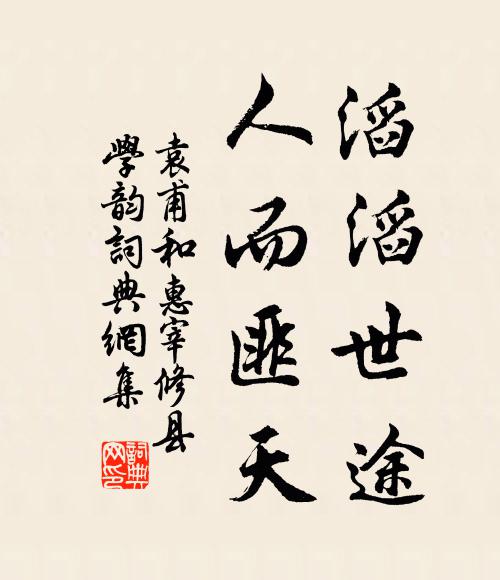 滔滔世途
人而匪天
袁甫和惠宰修县
學韵詞典網集
詞典网印